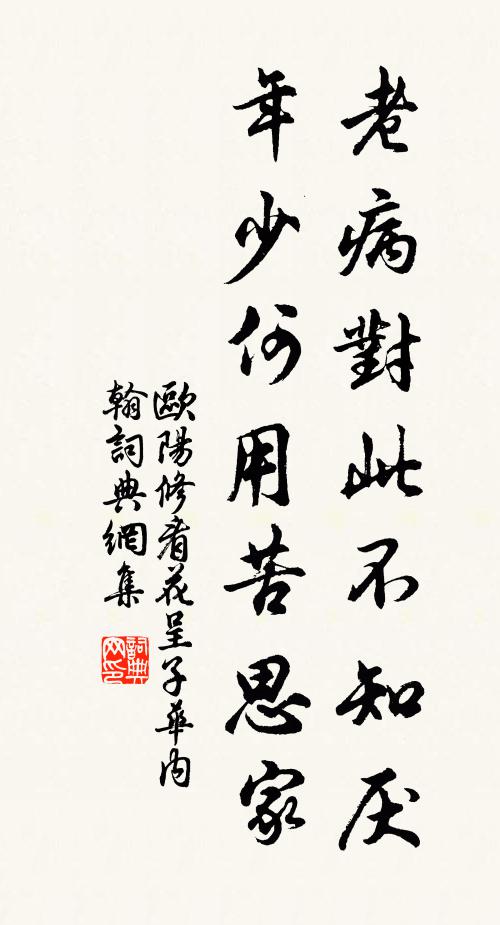 老病對此不知厌
年少何用苦思家
歐陽修看花呈子華内
翰詞典網集
詞典
网印